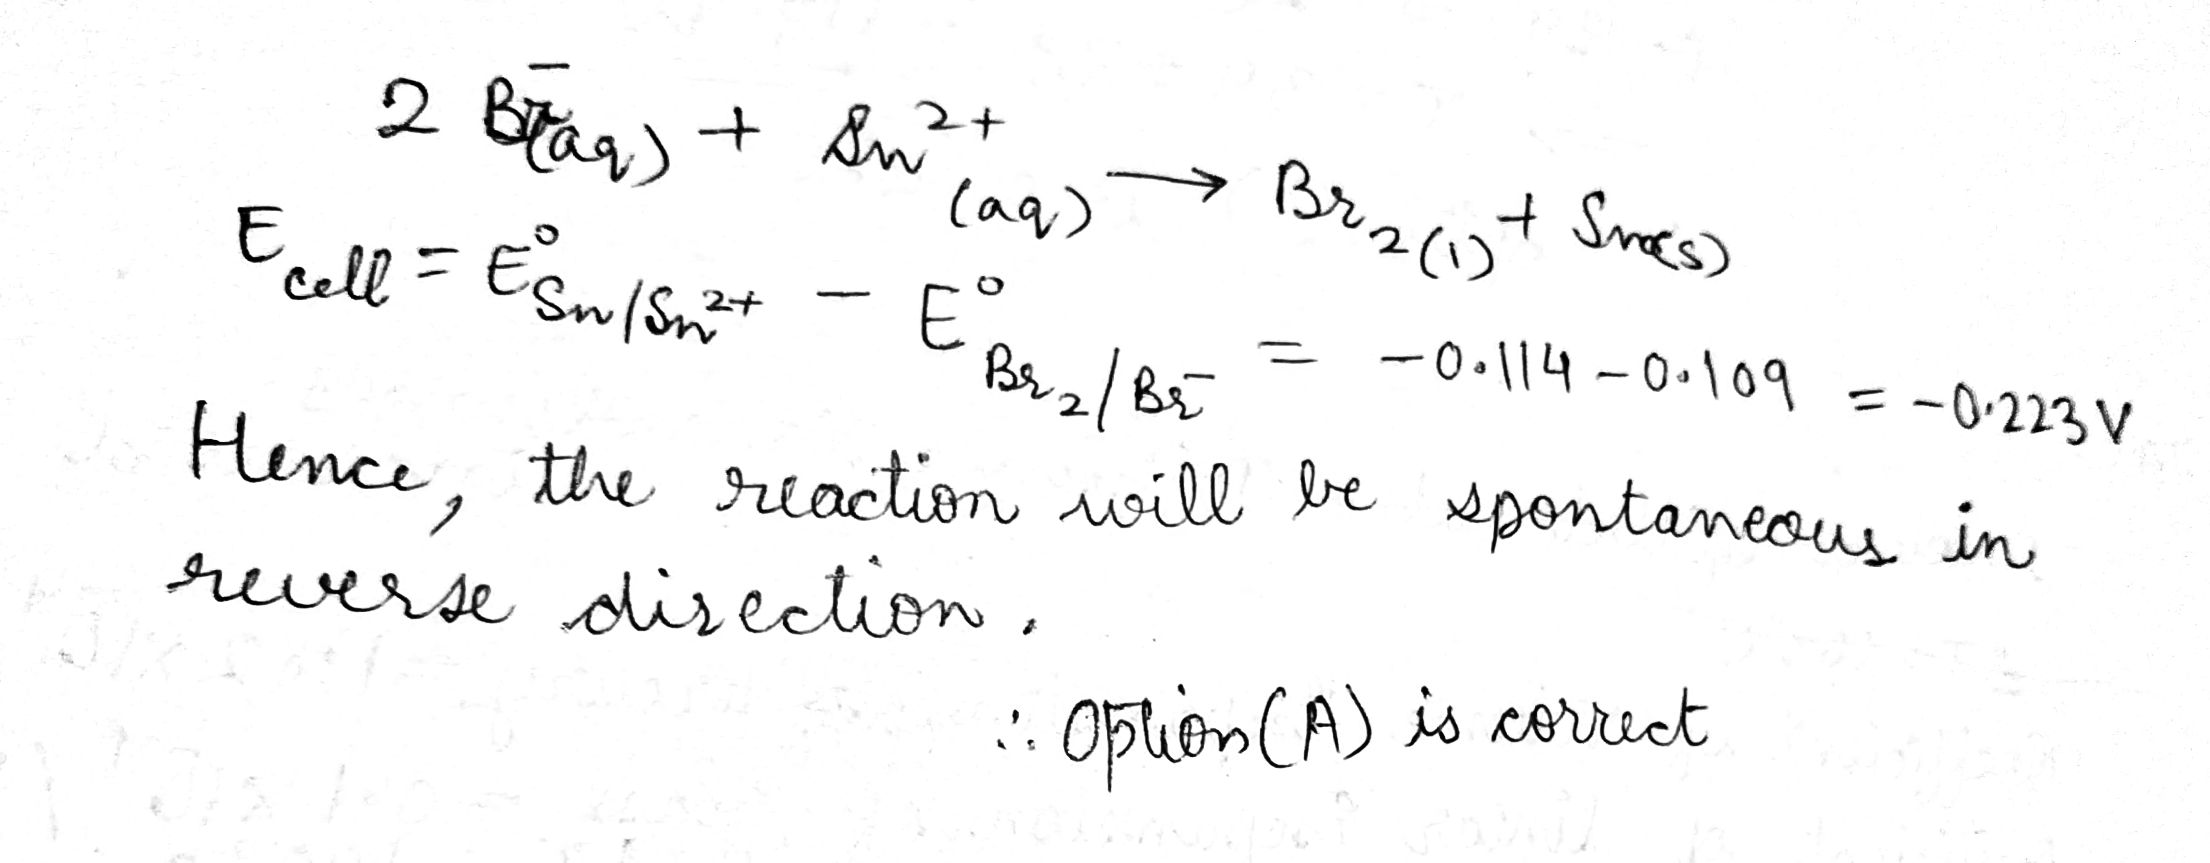 2 Br⁻(aq) + Sn²⁺(aq) → Br₂(l) + Sn(s)
E cell = E°Sn/Sn²⁺ − E°Br₂/Br⁻ = −0.114 − 0.109 = −0.223 V
Hence, the reaction will be spontaneous in
reverse direction.
∴ Option (A) is correct